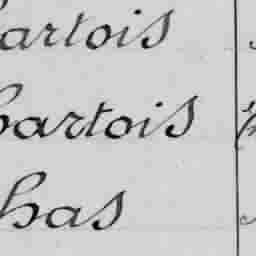 artois
bartois
has